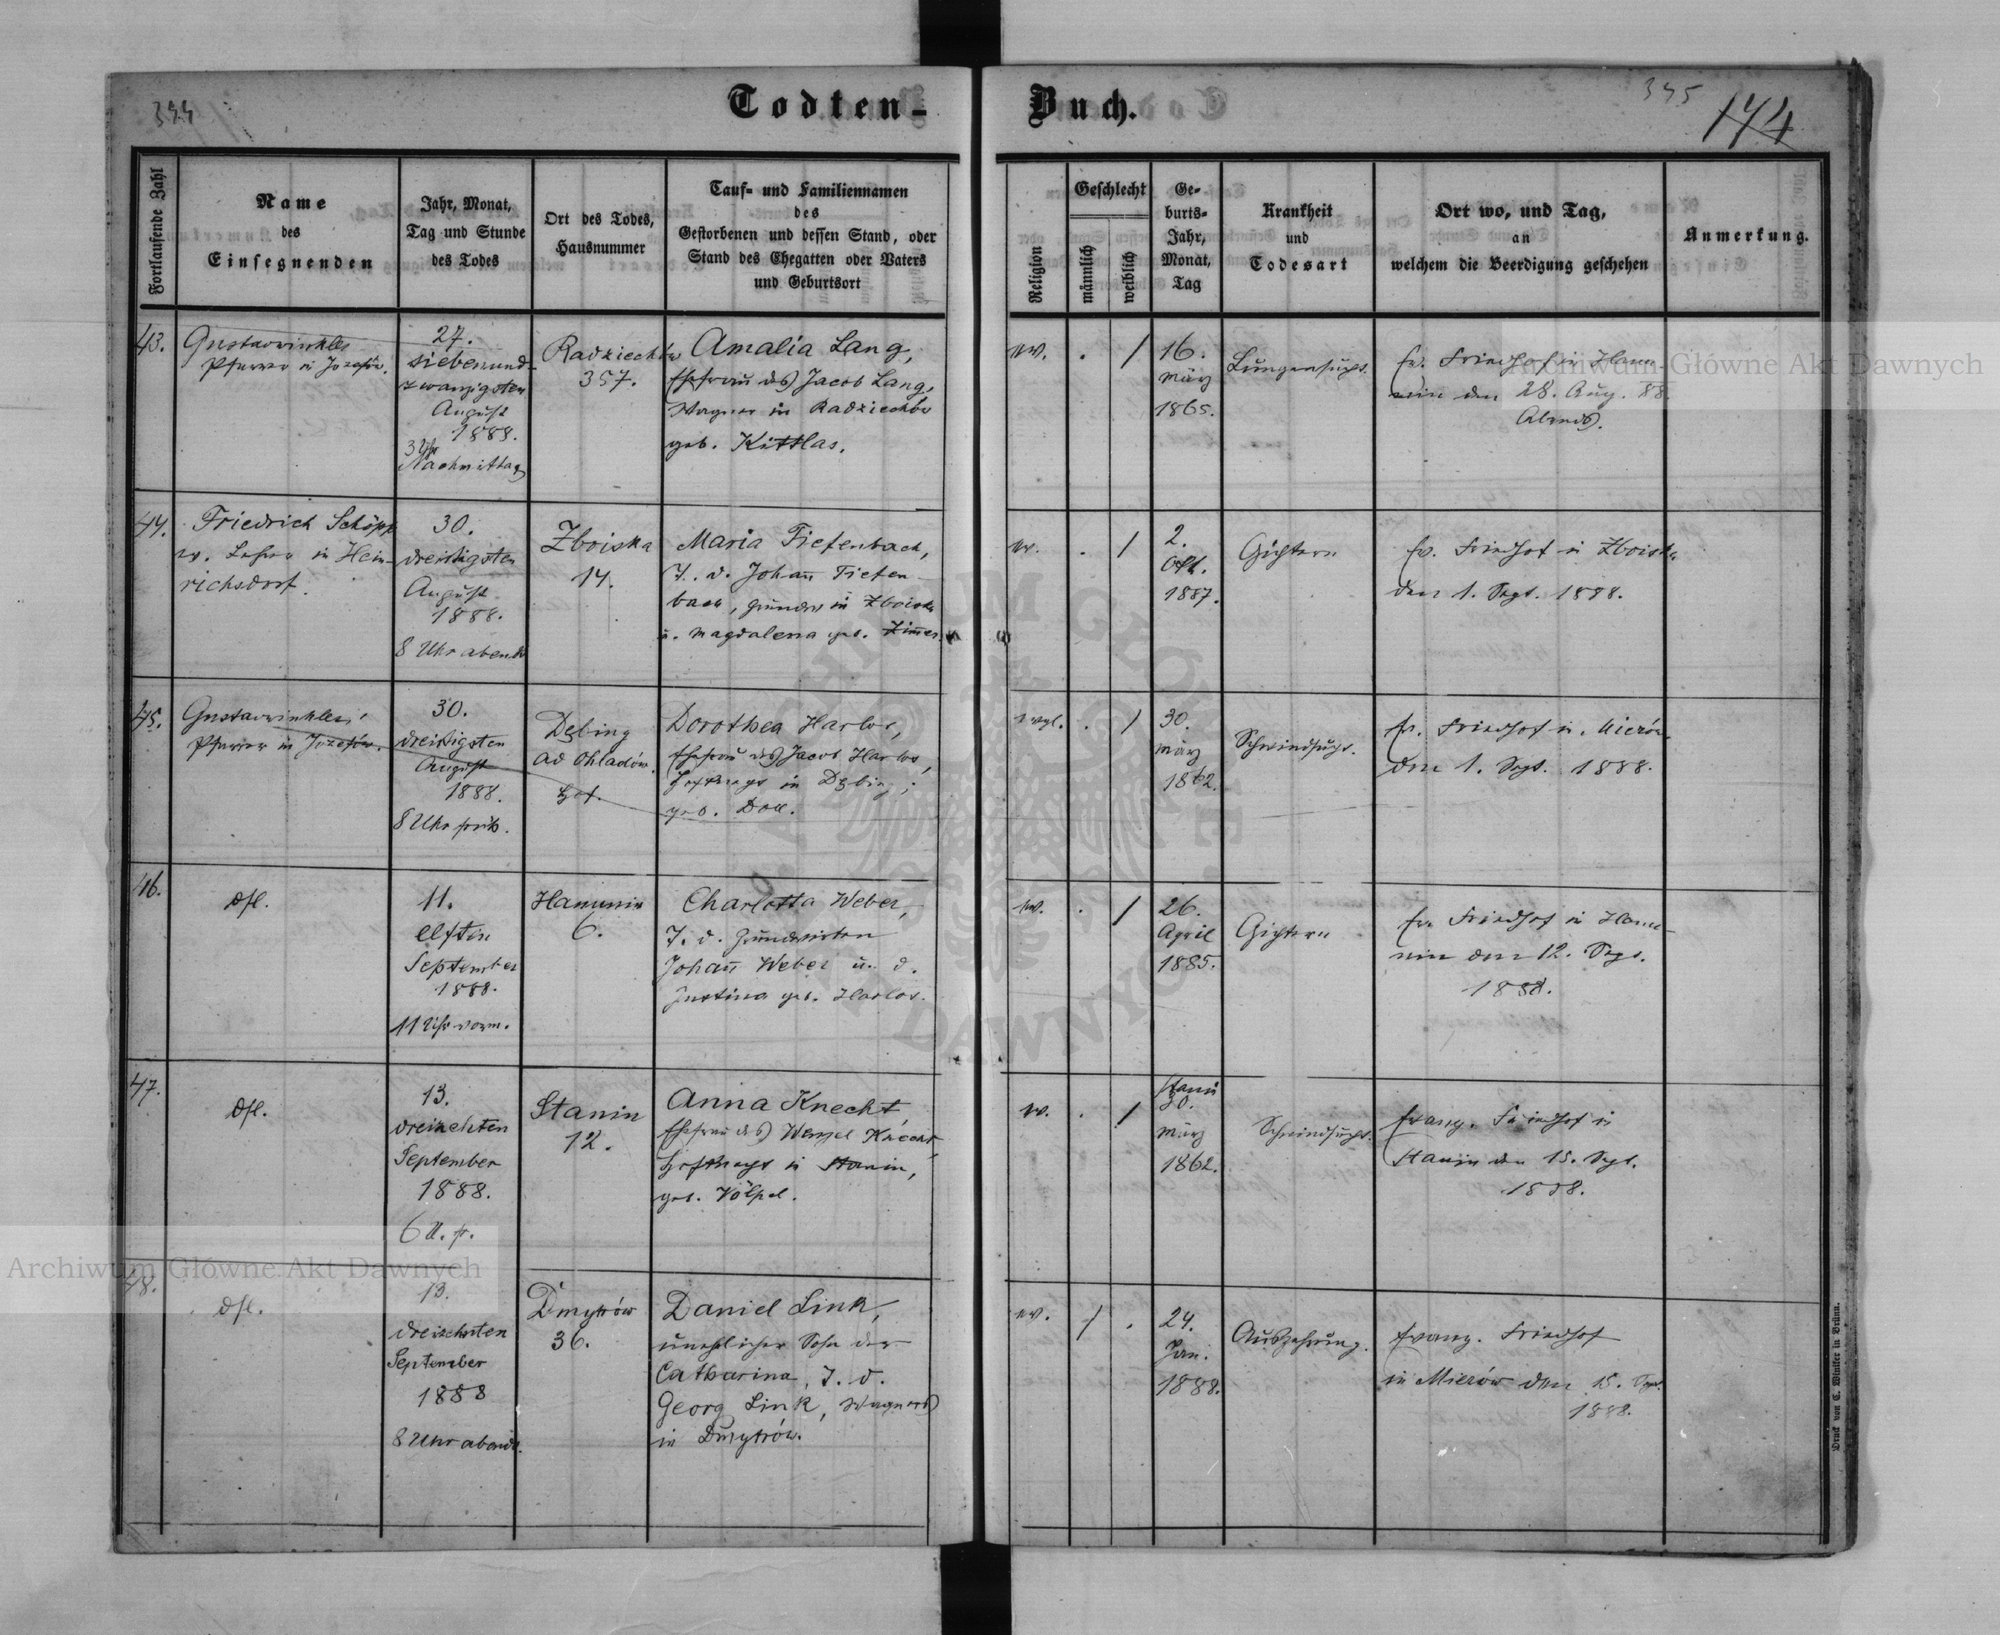 344
Todten-
Buch.
345
174
Fortlaufende Zahl
Name
des
Einsegnenden
Jahr, Monat,
Tag und Stunde
des Todes
Ort des Todes,
Hausnummer
Tauf- und Familiennamen
des
Gestorbenen und dessen Stand, oder
Stand des Ehegatten oder Vaters
und Geburtsort
Religion
Geschlecht
männlich
weiblich
Ge-
burts-
Jahr,
Monat,
Tag
Krankheit
und
Todesart
Ort wo, und Tag,
an
welchem die Beerdigung geschehen
Anmerkung.
43.
Pfarrer in Józefów.
27.
siebenund-
zwanzigsten
August
1888.
3 Uhr
Nachmittag
Radziechów
357.
Amalia Lang,
Ehefrau des Jacob Lang,
Wagner in Radziechów
geb. Kittlas.
ev.
. /
16.
März
1865.
Lungensucht.
Ev. Friedhof in Hanu-
nin den 28. Aug. 88.
Abends.
44.
Friedrich Schöpp
ev. Lehrer in Hein-
richsdorf.
30.
dreißigsten
August
1888.
8 Uhr abends
Zboiska
14.
Maria Tiefenbach,
T. d. Johann Tiefen-
bach, Grundw. in Zboiska
u. Magdalena geb. Zimmer.
ev.
. /
2.
Okt.
1887.
Gichtern
Ev. Friedhof in Zboiska
den 1. Sept. 1888.
45.
Pfarrer in Józefów.
30.
dreißigsten
August
1888.
8 Uhr früh.
Dębiny
ad Ohladów.
Hof.
Dorothea Harlos,
Ehefrau des Jacob Harlos,
Hofknecht in Dębiny,
geb. Doll.
evgl.
. /
30.
März
1862.
Schwindsucht.
Ev. Friedhof in Mierów
den 1. Sept. 1888.
46.
dsl.
11.
elften
September
1888.
11 Uhr vorm.
Hanunin
6.
Charlotta Weber,
T. d. Grundwirten
Johann Weber u. d.
Justina geb. Harlos.
ev.
. /
26.
April
1885.
Gichtern
Ev. Friedhof in Hanu-
nin den 12. Sept.
1888.
47.
dsl.
13.
dreizehnten
September
1888.
6 U. fr.
Stanin
12.
Anna Knecht
Ehefrau des Wenzel Knecht,
Hofknecht in Stanin,
geb. Völpel.
ev.
. /
30.
März
1862.
Schwindsucht.
Evang. Friedhof in
Stanin den 15. Sept.
1888.
48.
dsl.
13.
dreizehnten
September
1888
8 Uhr abends.
Dmytrów
36.
Daniel Link,
unehlicher Sohn der
Catharina, T. d.
Georg Link, Wagners
in Dmytrów.
ev.
/ .
24.
Jan.
1888.
Auszehrung.
Evang. Friedhof
in Mierów den 15. Sept.
1888.
Druck von C. Winiker in Brünn.
Archiwum Główne Akt Dawnych
Archiwum Główne Akt Dawnych